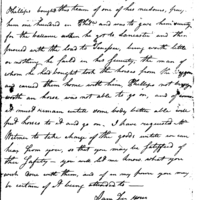 Phillips bought this team of one of his waders, giv
him one hundred in Phila and was to give him security
for the balance when he got to Lancaster and then
proceed with the load to Stanfern, being worth little
or nothing, he failed in his security, the man of
whom he had bought took the horses from the waggon
and carried them home with him, Phillips not being
worth an horse was not able to go on, and I
it would remain untill some body better able wou
put horses to it and go on. I have requested Mr
Nelson to take charge of the goods untill he can
hear from you, so that you may be satisfied of
their safety— you will let us know what you
wish done with them, and if in my power you may
be certain of it being attended to—
I am for your